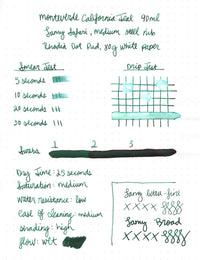 Monteverde California Teal 90ml
Lamy Safari, medium steel nib
Rhodia Dot Pad, 80g white paper
Smear Test
Drip Test
5 seconds
10 seconds
20 seconds
30 seconds
Swabs
1 2 3
Dry Time: 25 seconds
Saturation: medium
Water resistance: low
Ease of cleaning: medium
Shading: high
Flow: wet
Lamy Extra-fine
xxxx
Lamy Broad
xxxx